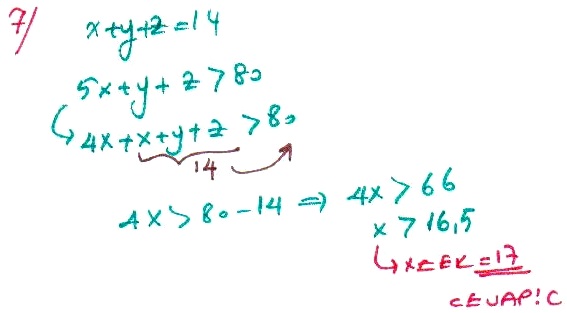 7/ x+y+z=14
5x+y+z>80
↳ 4x+x+y+z >80
14
4x>80-14 ⇒ 4x>66
x>16,5
↳ x EK =17
CEVAP: C